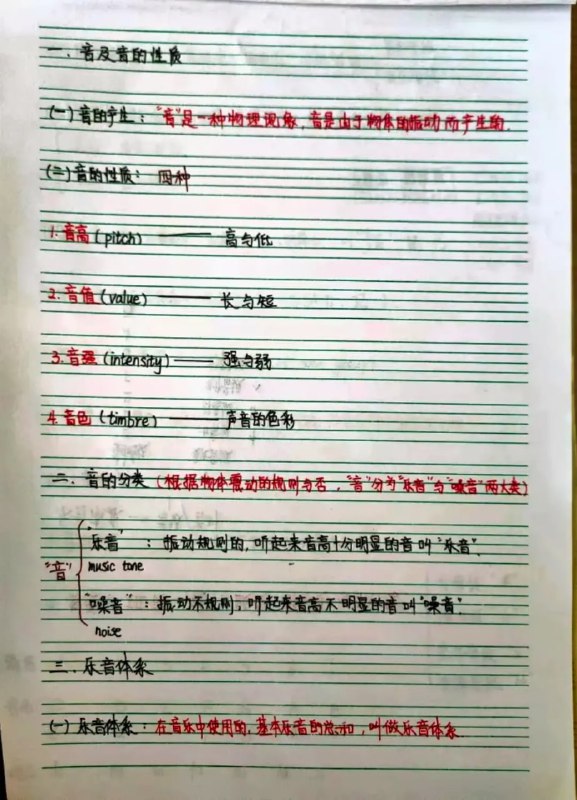 一．音及音的性质
(一)音的产生："音"是一种物理现象，音是由于物体的振动而产生的．
(二)音的性质：四种
1.音高(pitch)——高与低
2.音值(value)——长与短
3.音强(intensity)——强与弱
4.音色(timbre)——声音的色彩
二．音的分类(根据物体震动的规则与否，"音"分为"乐音"与"噪音"两大类)
"乐音"：振动规则的，听起来音高十分明显的音叫"乐音"．
"音"
music tone
"噪音"：振动不规则，听起来音高不明显的音叫"噪音"
noise
三．乐音体系
(一)乐音体系：在音乐中使用的，基本乐音的总和，叫做乐音体系．